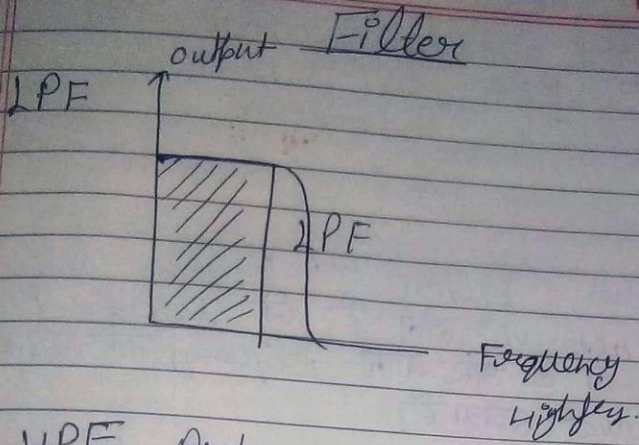 Filter
output
LPF
LPF
Frequency
High fey.
HPF